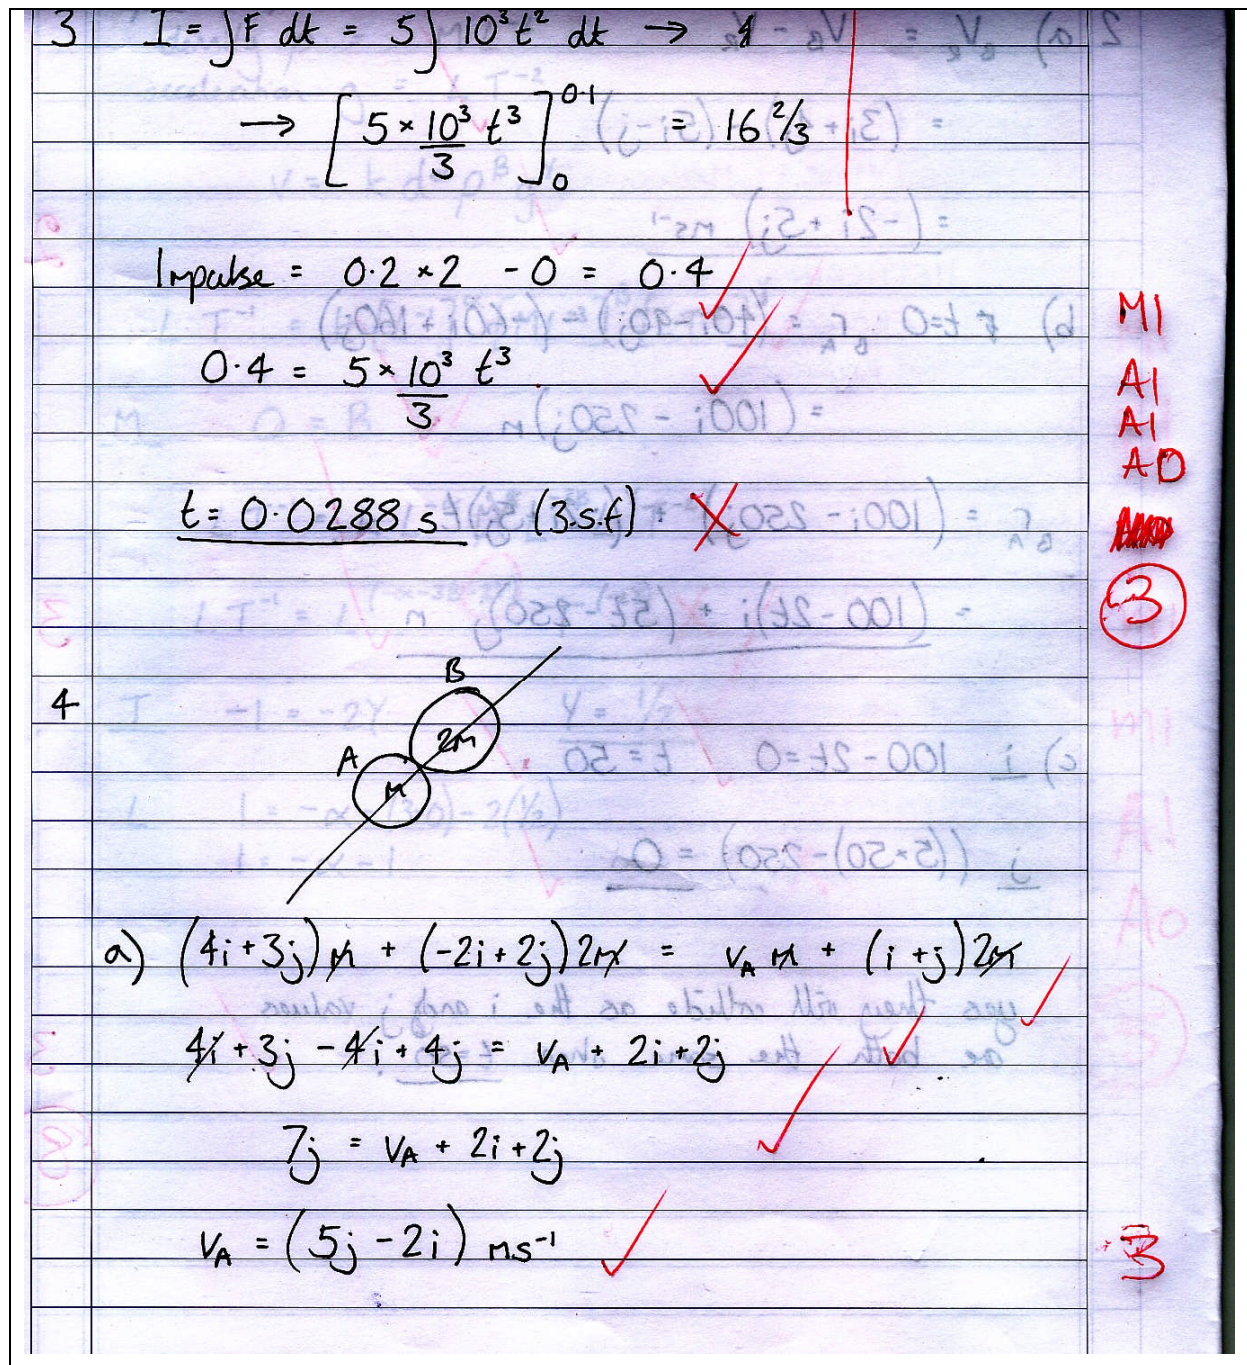 3 I = ∫F dt = 5∫10³t² dt →
→ [5 × 10³/3 t³]₀^0.1 = 16 2/3
Impulse = 0.2 × 2 - 0 = 0.4
M1
0.4 = 5 × 10³/3 t³
A1
A1
A0
t = 0.0288 s (3.s.f)
3
4
B
2M
A
M
a) (4i + 3j)M + (-2i + 2j)2M = V_A M + (i + j)2M
4i + 3j - 4i + 4j = V_A + 2i + 2j
7j = V_A + 2i + 2j
V_A = (5j - 2i) ms⁻¹
3